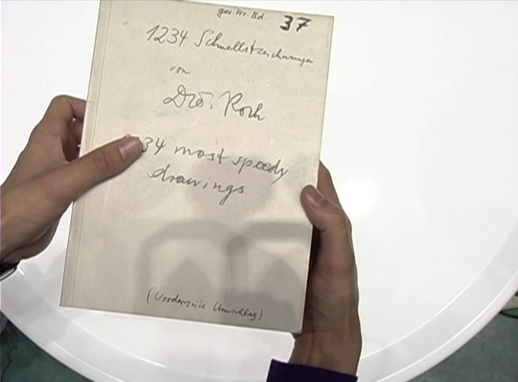 ges. Wr. Bd 37
1234 Schnellstzeichnungen
von
Roth
1234 most speedy
drawings
(Vorderseite Umschlag)